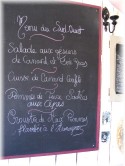 Menu du Sud Ouest
Salade aux gésiers
de Canard et Foie Gras
Cuisse de Canard Confite
Pommes de Terre Sautées
aux Cèpes
Croustade aux Pommes
flambée à l'Armagnac